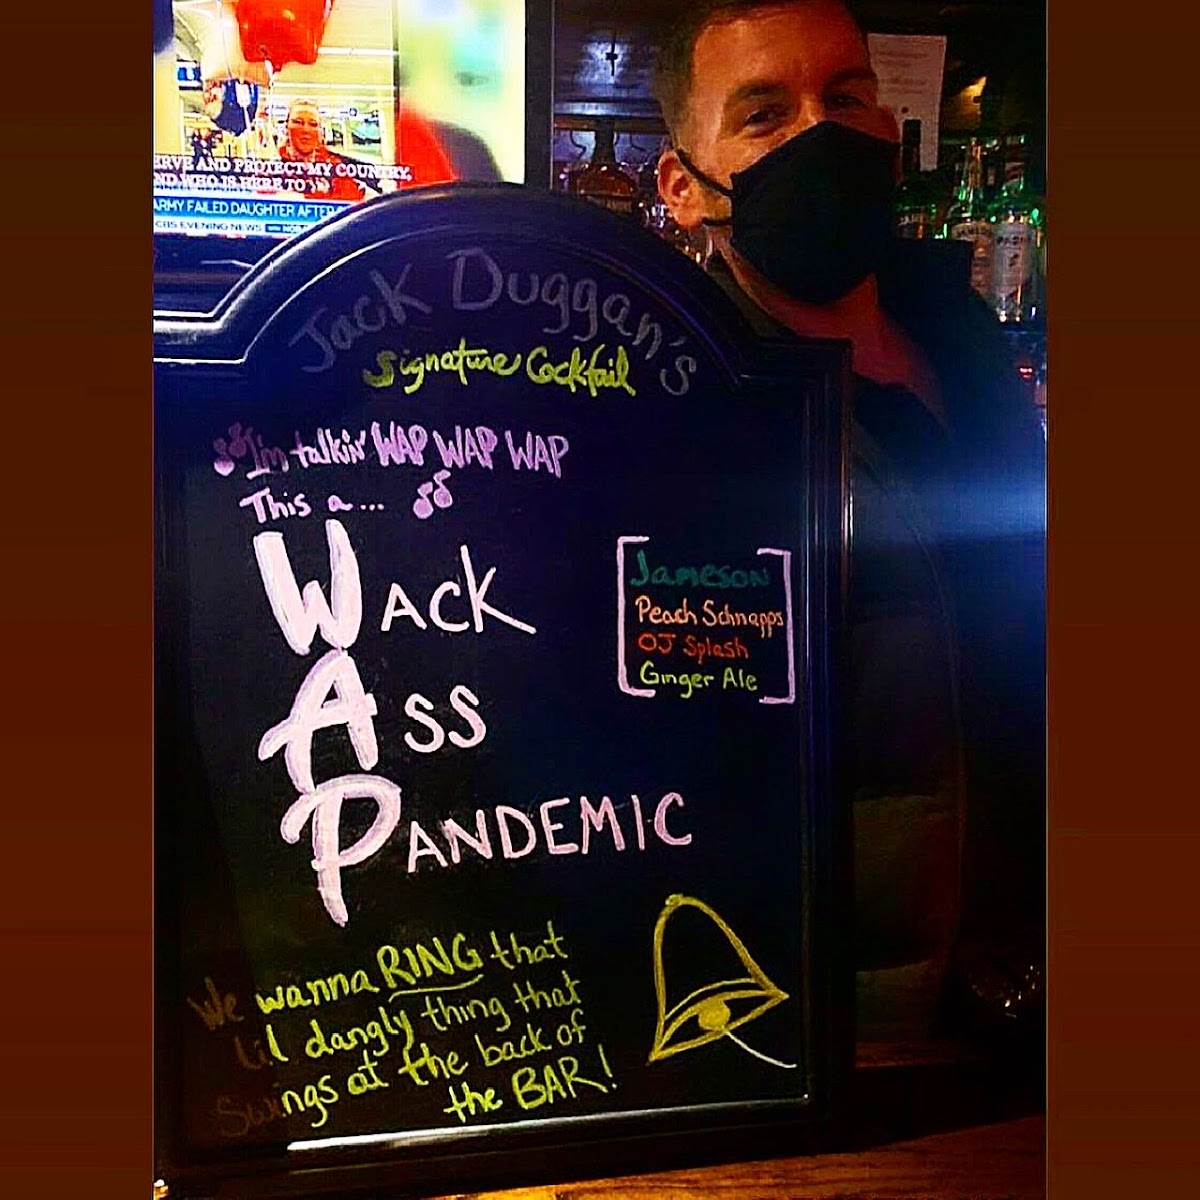 ERVE AND PROTECT MY COUNTRY,
ND WHO IS HERE TO
ARMY FAILED DAUGHTER AFTER
CBS EVENING NEWS
Jack Duggan's
Signature Cocktail
I'm talkin' WAP WAP WAP
This a...
WACK
ASS
PANDEMIC
[Jameson
Peach Schnapps
OJ Splash
Ginger Ale]
We wanna RING that
lil dangly thing that
swings at the back of
the BAR!